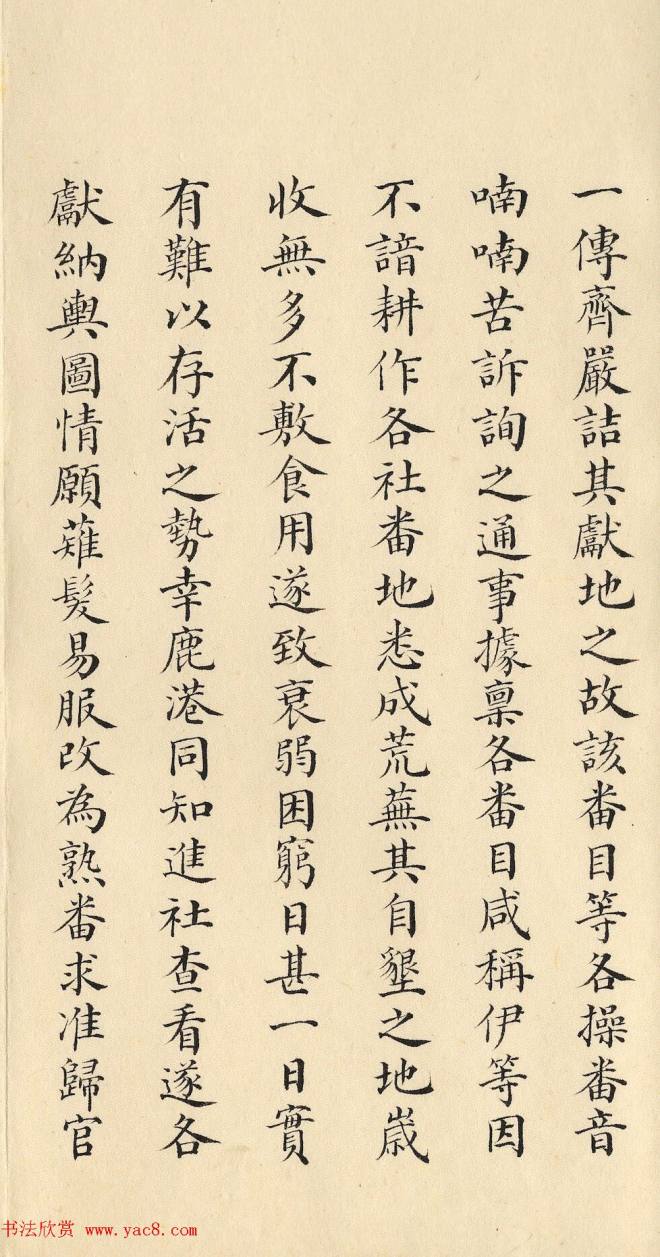 一傳齊嚴詰其獻地之故該番目等各操番音
喃喃苦訴詢之通事據稟各番目咸稱伊等因
不諳耕作各社番地悉成荒蕪其自墾之地歲
收無多不敷食用遂致衰弱困窮日甚一日實
有難以存活之勢幸鹿港同知進社查看遂各
獻納輿圖情願薙髮易服改為熟番求准歸官
书法欣赏 www.yac8.com